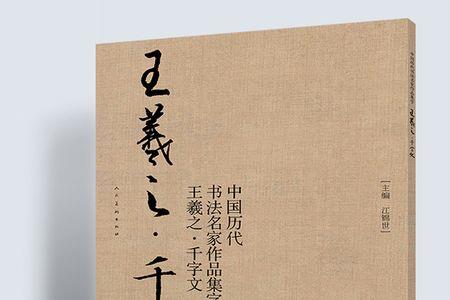 王羲之·千
人民美术出版社
中国历代
书法名家作品集字
王羲之·千字文
[主编 江锦世]
中国历代书法名家作品集字
王羲之·千字文